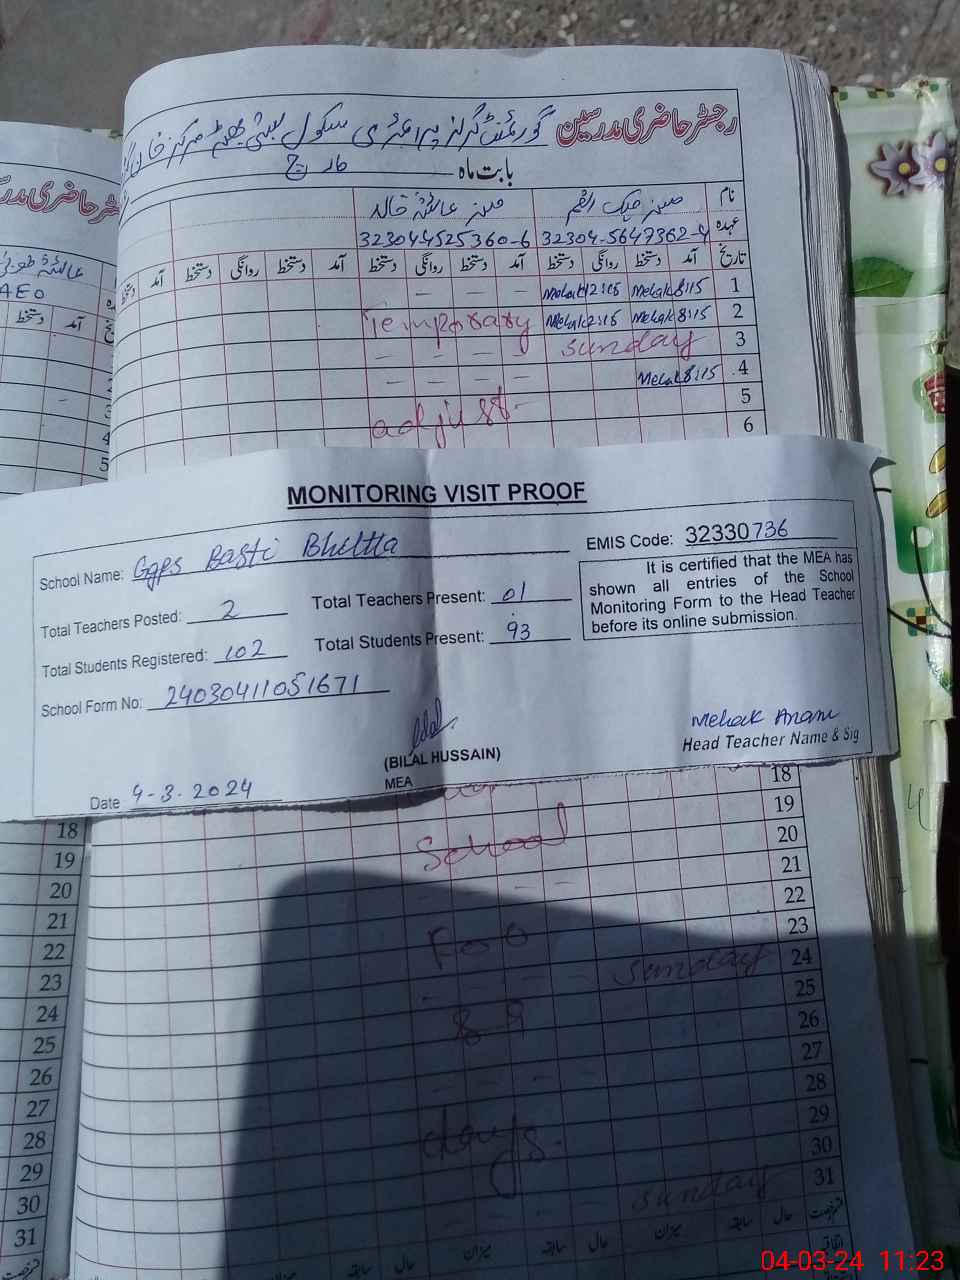 رجسٹر حاضری مدرسین گورنمنٹ گرلز پرائمری سکول بستی بھٹہ مرکز خان
بابت ماہ مارچ
نام مس مہک انعم مس عائشہ خالد
عہدہ 32304-5647362-4 32304-4525360-6
تاریخ آمد دستخط روانگی دستخط آمد دستخط روانگی دستخط آمد دستخط روانگی دستخط آمد دستخط
1 Mehak 8:15 Mehak 12:15
2 Mehak 8:15 Mehak 12:15 Temporary
3 sunday
4 Mehak 8:15
5 adjust
6
MONITORING VISIT PROOF
School Name: Ggps Basti Bhutta
EMIS Code: 32330736
Total Teachers Posted: 2
Total Teachers Present: 01
Total Students Registered: 102
Total Students Present: 93
School Form No: 24030411051671
It is certified that the MEA has
shown all entries of the School
Monitoring Form to the Head Teacher
before its online submission.
(BILAL HUSSAIN)
MEA
Mehak Anam
Head Teacher Name & Sig
Date 4-3-2024
18
19
20 School
21
22
23 For
24 sunday
25
26 89
27
28
29
30 days.
31 sunday
حال سابقہ میزان حال سابقہ میزان حال سابقہ
رجسٹر حاضری مدرس
AEO
دستخط آمد
18
19
20
21
22
23
24
25
26
27
28
29
30
31
04-03-24 11:23